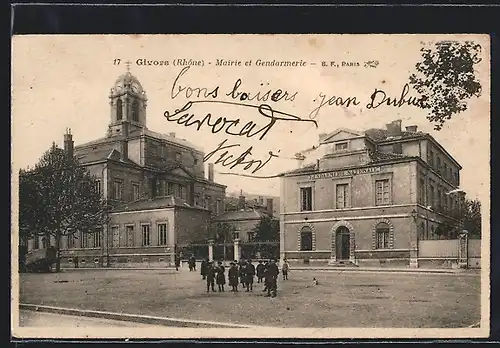 17 Givors (Rhône) - Mairie et Gendarmerie - B. F., PARIS
bons baisers Jean Dubor
Lavocat
Victor
GENDARMERIE NATIONALE